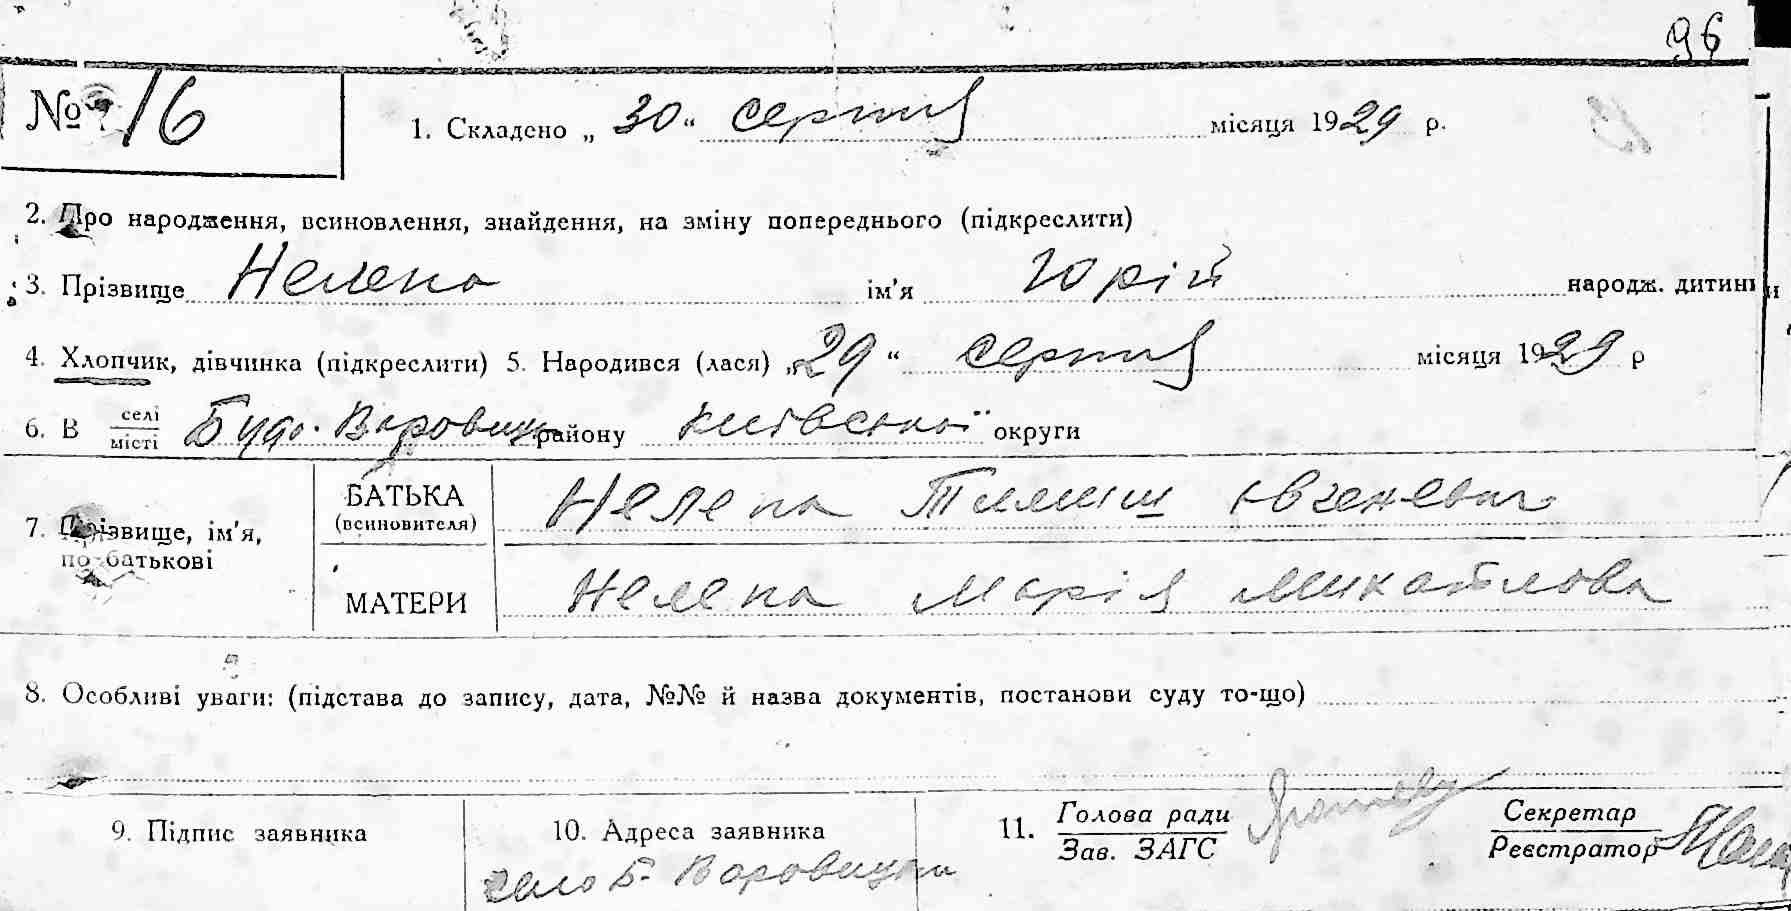 96
№ 16
1. Складено „ 30 “ серпня місяця 1929 р.
2. Про народження, всиновлення, знайдення, на зміну попереднього (підкреслити)
3. Прізвище Нелепа ім'я Юрій народж. дитини
4. Хлопчик, дівчинка (підкреслити) 5. Народився (лася) „ 29 “ серпня місяця 1929 р
6. В селі/місті Будо. Воровицьк району Київської округи
7. Прізвище, ім'я, по-батькові
БАТЬКА (всиновителя) Нелепа Тиміш Євгеневич
МАТЕРИ Нелепа Марія Михайлова
8. Особливі уваги: (підстава до запису, дата, №№ й назва документів, постанови суду то-що)
9. Підпис заявника
10. Адреса заявника
село Б-Воровицьки
11. Голова ради
Зав. ЗАГС
Секретар
Реєстратор